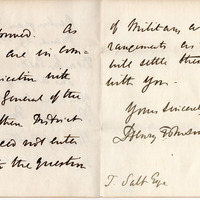 formed. As
are in com-
ication with
General of the
thern District
eed not enter
to the question
of Military ar
rangements as
will settle them
with you.
Yours sincerely
T. Salt Esqe